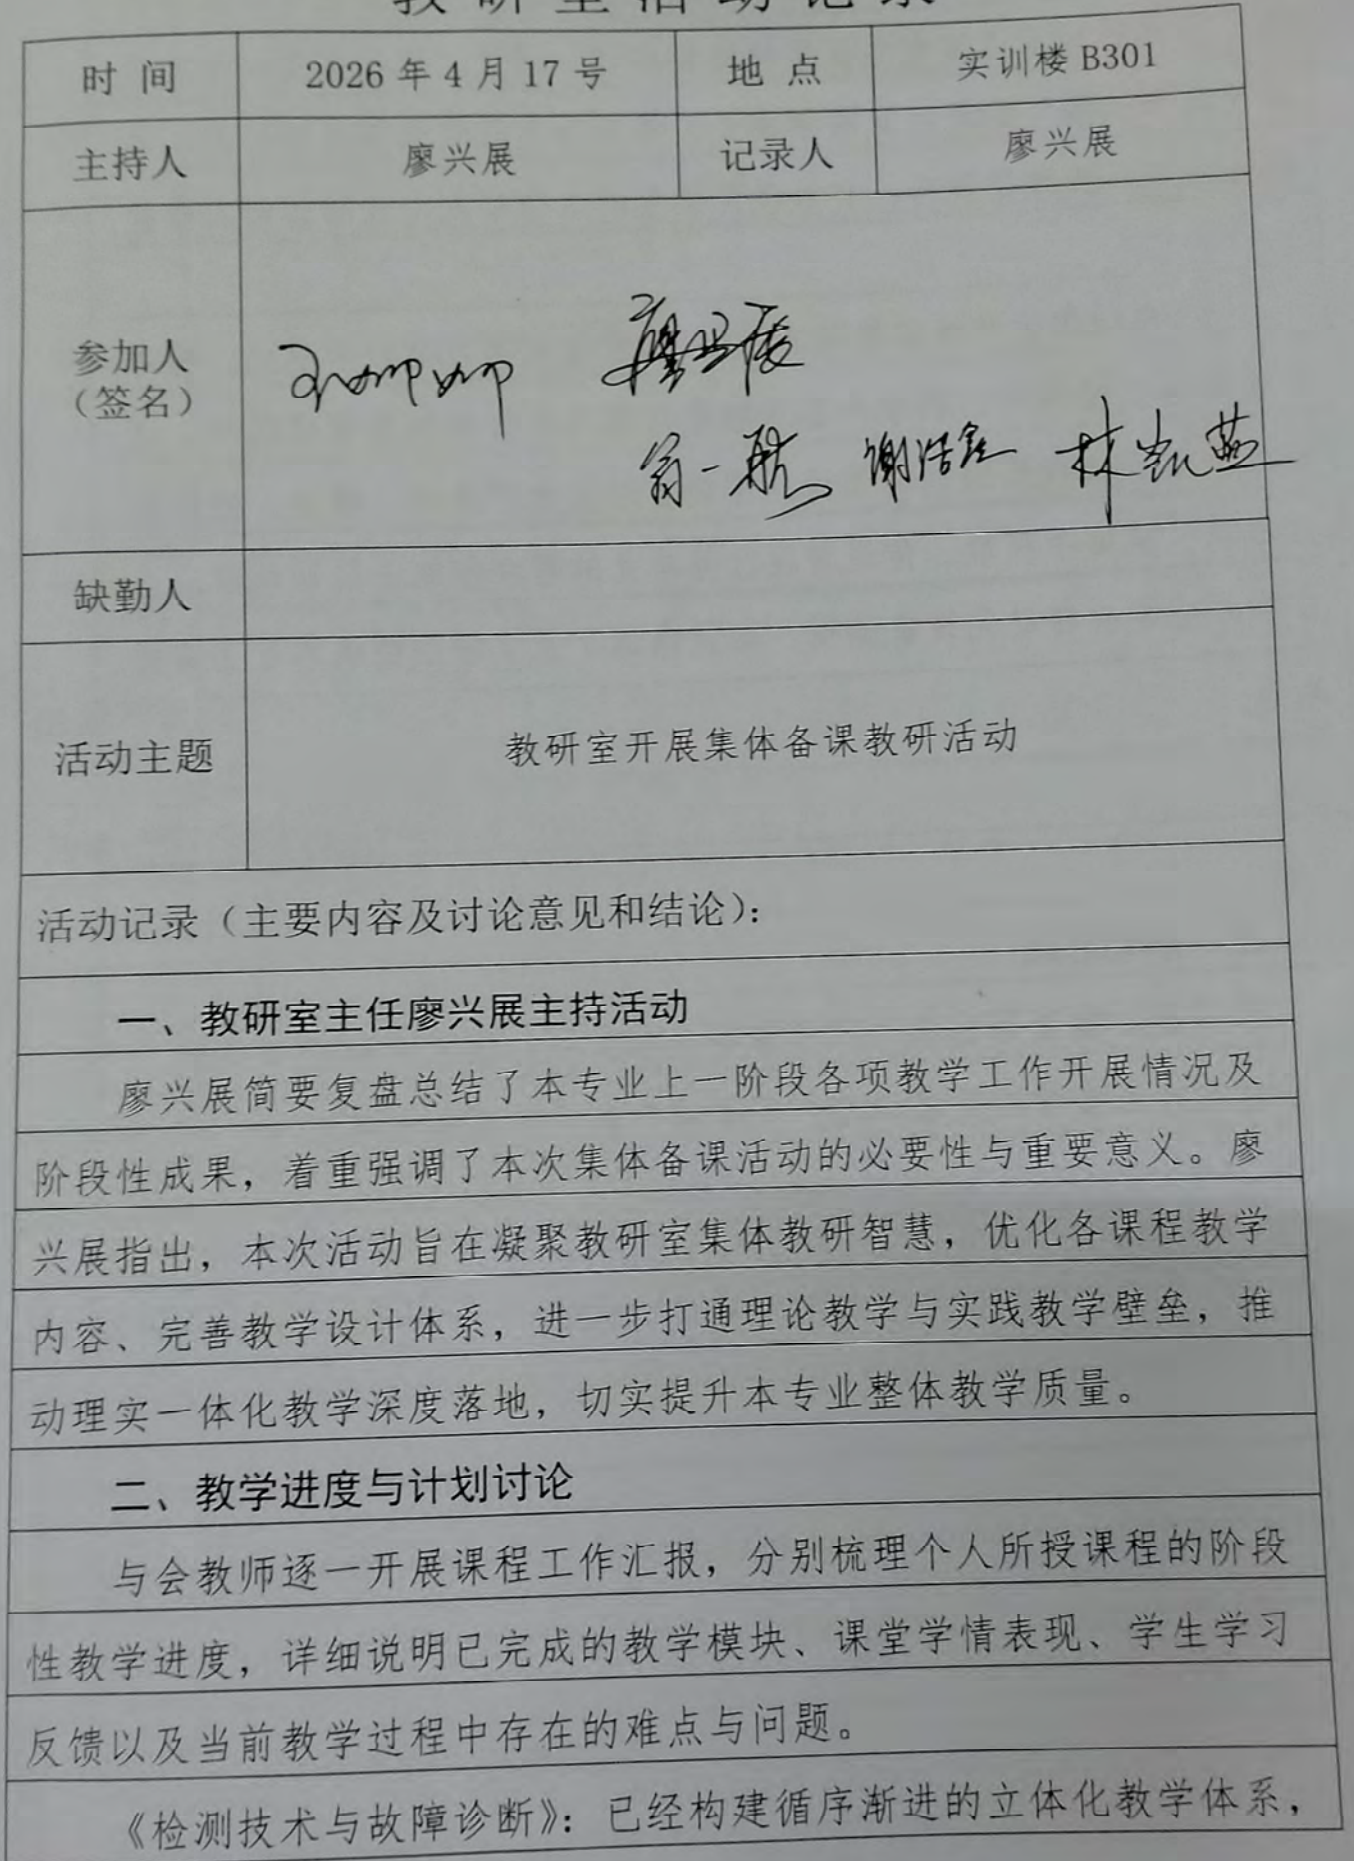 教研室活动记录
时 间 2026 年 4 月 17 号 地 点 实训楼 B301
主持人 廖兴展 记录人 廖兴展
参加人
（签名）
廖兴展
翁一航 谢浩鑫 林凯燕
缺勤人
活动主题 教研室开展集体备课教研活动
活动记录（主要内容及讨论意见和结论）：
一、教研室主任廖兴展主持活动
廖兴展简要复盘总结了本专业上一阶段各项教学工作开展情况及
阶段性成果，着重强调了本次集体备课活动的必要性与重要意义。廖
兴展指出，本次活动旨在凝聚教研室集体教研智慧，优化各课程教学
内容、完善教学设计体系，进一步打通理论教学与实践教学壁垒，推
动理实一体化教学深度落地，切实提升本专业整体教学质量。
二、教学进度与计划讨论
与会教师逐一开展课程工作汇报，分别梳理个人所授课程的阶段
性教学进度，详细说明已完成的教学模块、课堂学情表现、学生学习
反馈以及当前教学过程中存在的难点与问题。
《检测技术与故障诊断》：已经构建循序渐进的立体化教学体系，